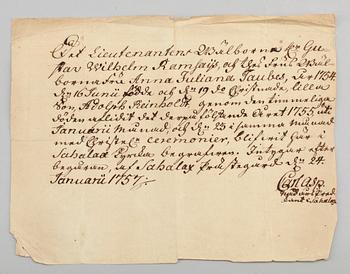 Det Lieutenantens Wälborna Hr Gu-
stav Wilhelm Ramsajs, och des Fru Wäl-
borna Fru Anna Juliana Taubes, År 1754
den 16 Junii födde och den 19 do Christnade, lilla
Son, Adolph Reinholdt genom den timmeliga
döden aflidit det derpåföljande Året 1755, uti
Januarii Månad, och den 25 i samma Månad
med Christel. ceremonier, blifvit här i
Sahalax Kyrka begrafven. Intygar efter
begäran, af Sahalax Prästegård den 24
Januarii 1757.
Carl Asp.
Sahalax